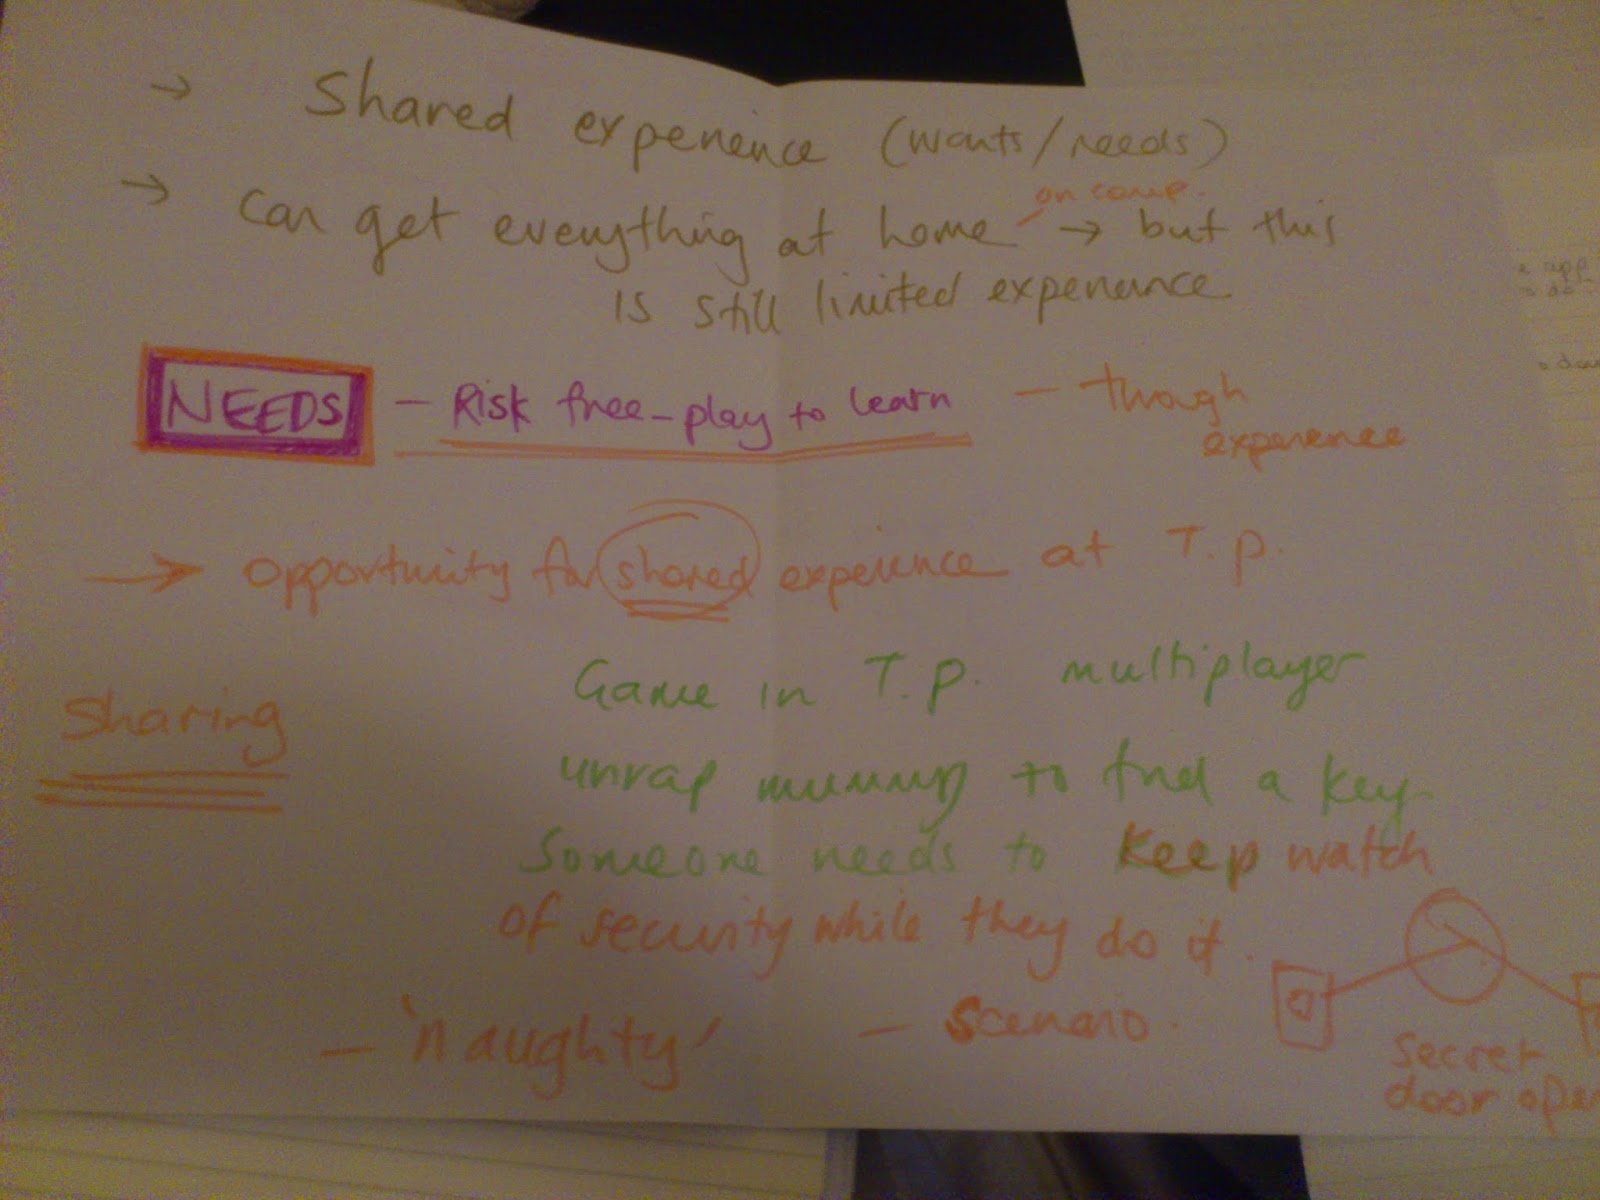 → Shared experience (wants/needs)
on comp.
→ can get everything at home → but this
is still limited experience
NEEDS - Risk free-play to learn - though
experience
→ opportunity for shared experience at T.P.
Sharing
Game in T.P. multiplayer
unrap mummy to find a key.
Someone needs to keep watch
of security while they do it.
- 'naughty' - scenario.
Secret
door open